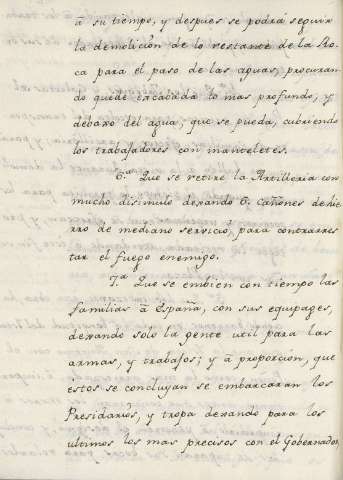 à su tiempo, y despues se podrá seguir
la demolicion de lo restante de la Ro-
ca para el paso de las aguas, procuran
do quede excabada lo mas profundo, y
debaxo del agua, que se pueda, cubriendo
los trabajadores con manteletes.
6.ª Que se retire la Artilleria con
mucho disimulo dexando 6. cañones de hie
rro de mediano servicio, para contrarres
tar el fuego enemigo.
7.ª Que se embien con tiempo las
familias à España, con sus equipages,
dexando solo la gente util para las
armas, y trabajos; y à proporcion, que
estos se concluyan se embarcaran los
Presidarios, y tropa dexando para los
ultimos los mas precisos con el Gobernador,